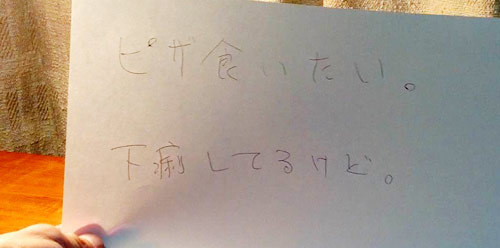 ピザ食いたい。
下痢してるけど。